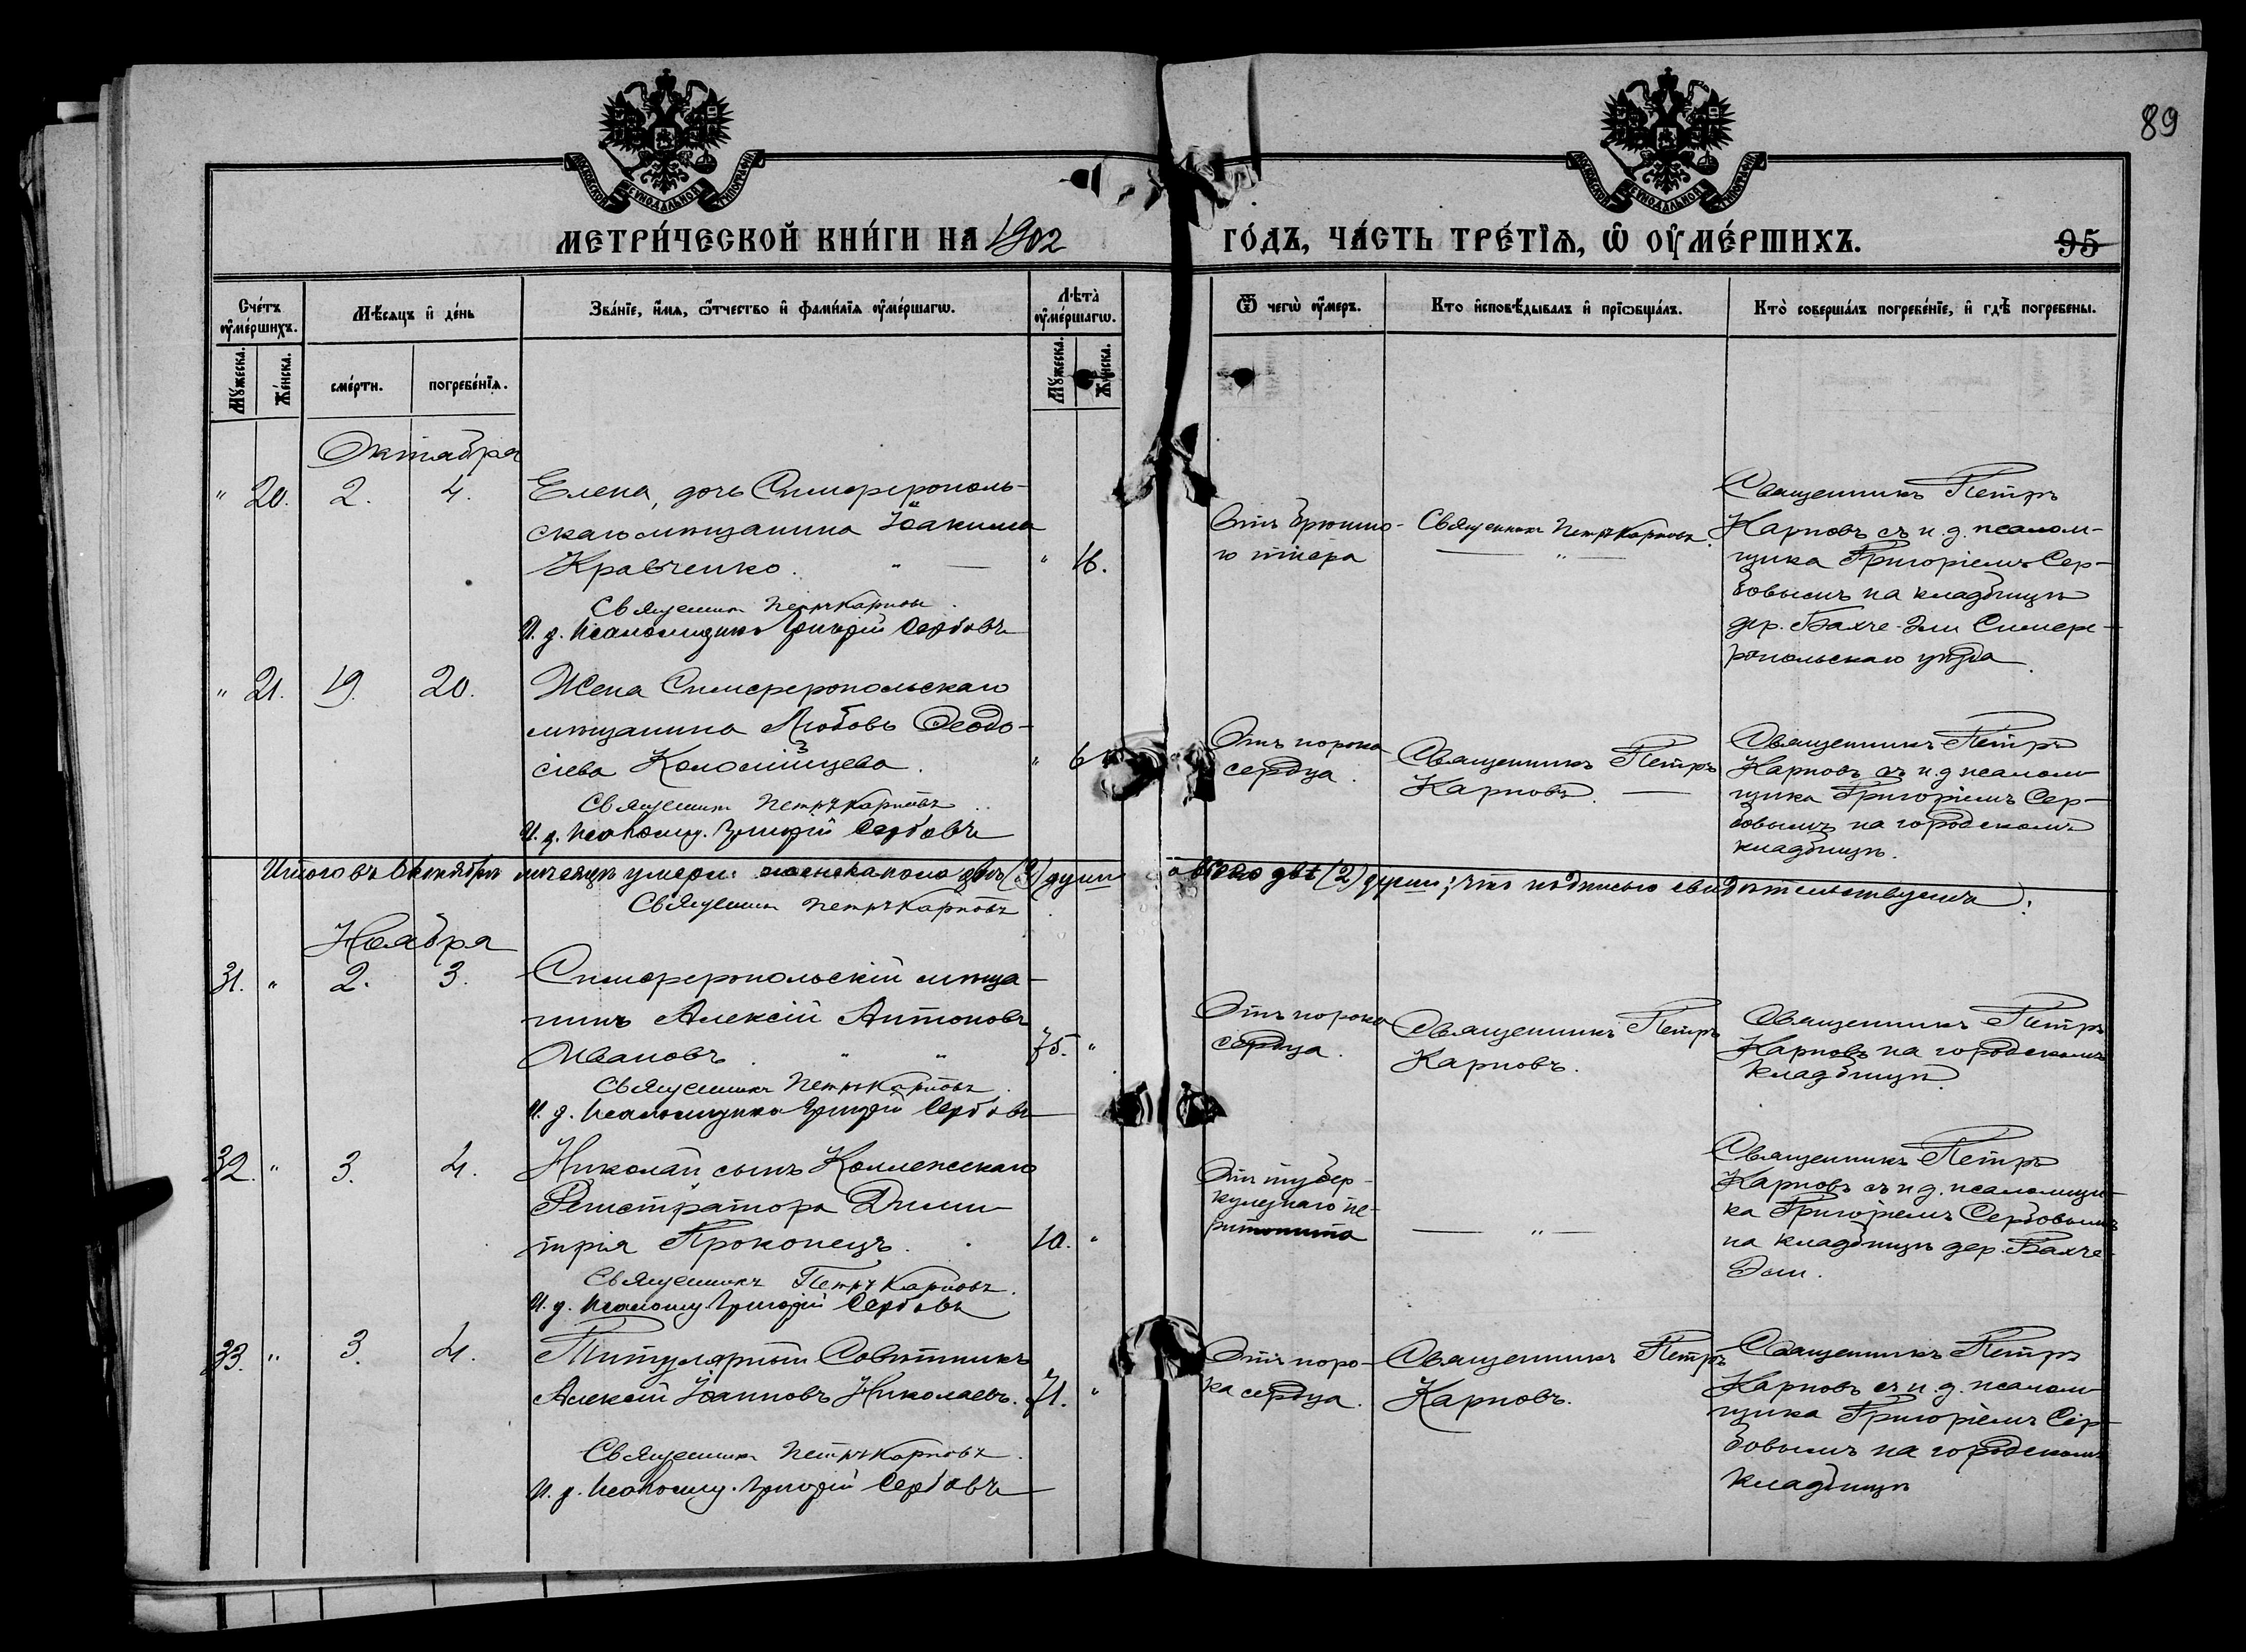 89
МОСКОВСКОЙ СѴНОДАЛЬНОЙ ТИПОГРАФІИ
МОСКОВСКОЙ СѴНОДАЛЬНОЙ ТИПОГРАФІИ
МЕТРИ́ЧЕСКОЙ КНИ́ГИ НА 1902
ГО́ДЪ, ЧА́СТЬ ТРЕ́ТІѦ, Ѡ ОУМЕ́РШИХЪ.
95
Сче́тъ оумершихъ.
Мѣ́сяцъ и де́нь
Зва́ніе, и́мя, ѻ́тчество и фами́лія оуме́ршагѡ.
Лѣта̀ оуме́ршагѡ.
Ѿ чегѡ̀ оу́меръ.
Кто исповѣ́дывалъ и пріѻбща́лъ.
Кто̀ соверша́лъ погребе́ніе, и гдѣ̀ погребены.
Мꙋжеска.
Же́нска.
сме́рти.
погребе́нїѧ.
Мꙋжеска.
Же́нска.
Октября
" 20. 2. 4.
Елена, дочь Симферополь-
скаго мѣщанина Іоакима
Кравченко. " —
" 16.
Священникъ Петръ Карповъ.
И. д. Псаломщика Григорій Сербовъ
Отъ брюшно-
го тифа
Священникъ Петръ Карповъ.
— " —
Священникъ Петръ
Карповъ съ и. д. псалом-
щика Григоріемъ Сер-
бовымъ на кладбищѣ
дер. Бахче-Эли Симфе-
ропольскаго уѣзда.
" 21. 19. 20.
Жена Симферопольскаго
мѣщанина Любовь Ѳеодо-
сіева Коломійцева.
" 6
Священникъ Петръ Карповъ
И. д. Псаломщ. Григорій Сербовъ
Отъ порока
сердца.
Священникъ Петръ
Карповъ. —
Священникъ Петръ
Карповъ съ и. д. псалом-
щика Григоріемъ Сер-
бовымъ на городскомъ
кладбищѣ.
Итого въ Октябрѣ мѣсяцѣ умерло: женска пола двѣ (2) души
а всего двѣ (2) души; что подписью свидѣтельствуемъ:
Священникъ Петръ Карповъ
Ноября
31. " 2. 3.
Симферопольскій мѣща-
нинъ Алексій Антоновъ
Ивановъ. " "
75. "
Священникъ Петръ Карповъ.
И. д. Псаломщика Григорій Сербовъ
Отъ порока
сердца.
Священникъ Петръ
Карповъ.
Священникъ Петръ
Карповъ на городскомъ
кладбищѣ.
32. " 3. 4.
Николай сынъ Коллежскаго
Регистратора Дими-
трія Прокопецъ.
10. "
Священникъ Петръ Карповъ.
И. д. Псаломщ. Григорій Сербовъ
От тубер-
кулезнаго пе-
ритонита
— " —
Священникъ Петръ
Карповъ съ и д. псаломщи-
ка Григоріемъ Сербовымъ
на кладбищѣ дер. Бахче-
Эли.
33. " 3. 4.
Титулярный Совѣтникъ
Алексій Іоанновъ Николаевъ.
71. "
Священникъ Петръ Карповъ.
И. д. Псаломщ. Григорій Сербовъ
Отъ поро-
ка сердца.
Священникъ Петръ
Карповъ.
Священникъ Петръ
Карповъ съ и. д. псалом-
щика Григоріемъ Сер-
бовымъ на городскомъ
кладбищѣ